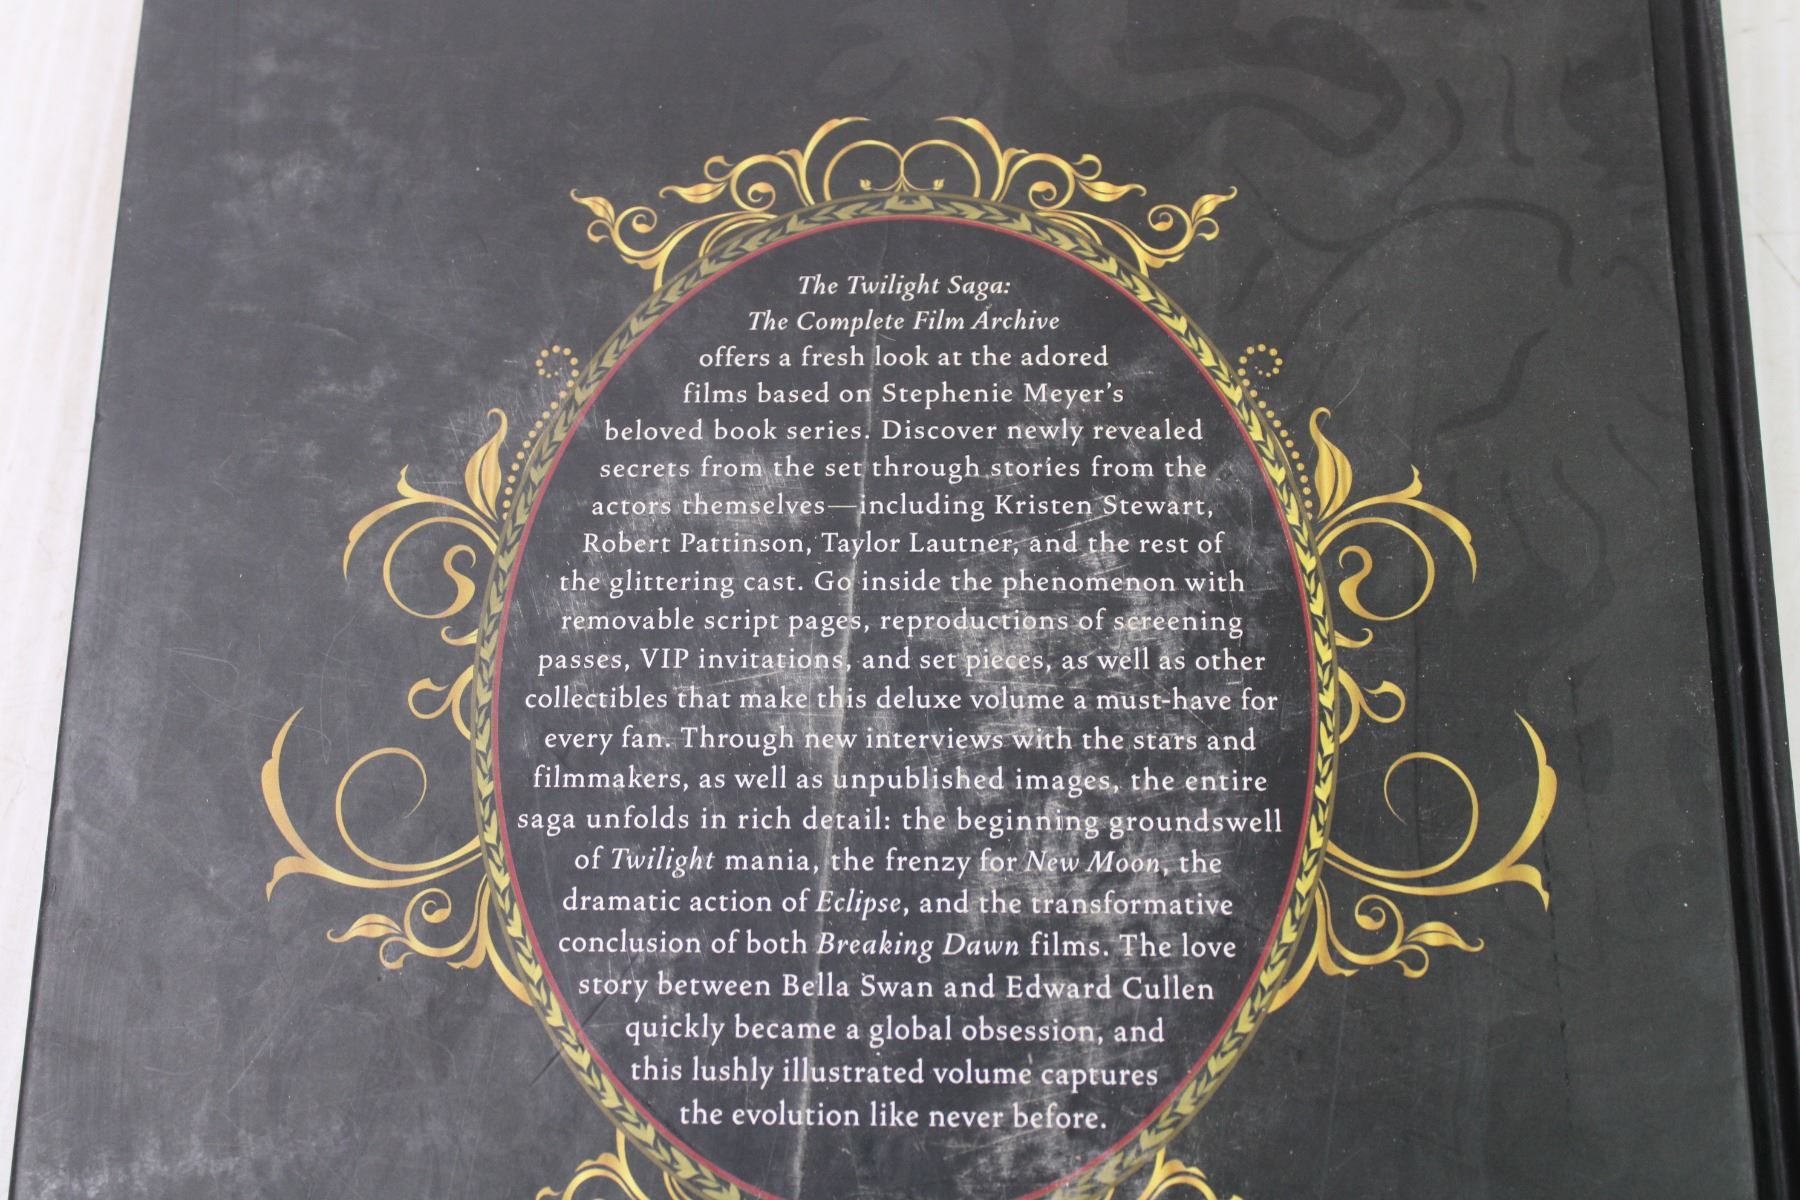 The Twilight Saga:
The Complete Film Archive
offers a fresh look at the adored
films based on Stephenie Meyer's
beloved book series. Discover newly revealed
secrets from the set through stories from the
actors themselves—including Kristen Stewart,
Robert Pattinson, Taylor Lautner, and the rest of
the glittering cast. Go inside the phenomenon with
removable script pages, reproductions of screening
passes, VIP invitations, and set pieces, as well as other
collectibles that make this deluxe volume a must-have for
every fan. Through new interviews with the stars and
filmmakers, as well as unpublished images, the entire
saga unfolds in rich detail: the beginning groundswell
of Twilight mania, the frenzy for New Moon, the
dramatic action of Eclipse, and the transformative
conclusion of both Breaking Dawn films. The love
story between Bella Swan and Edward Cullen
quickly became a global obsession, and
this lushly illustrated volume captures
the evolution like never before.